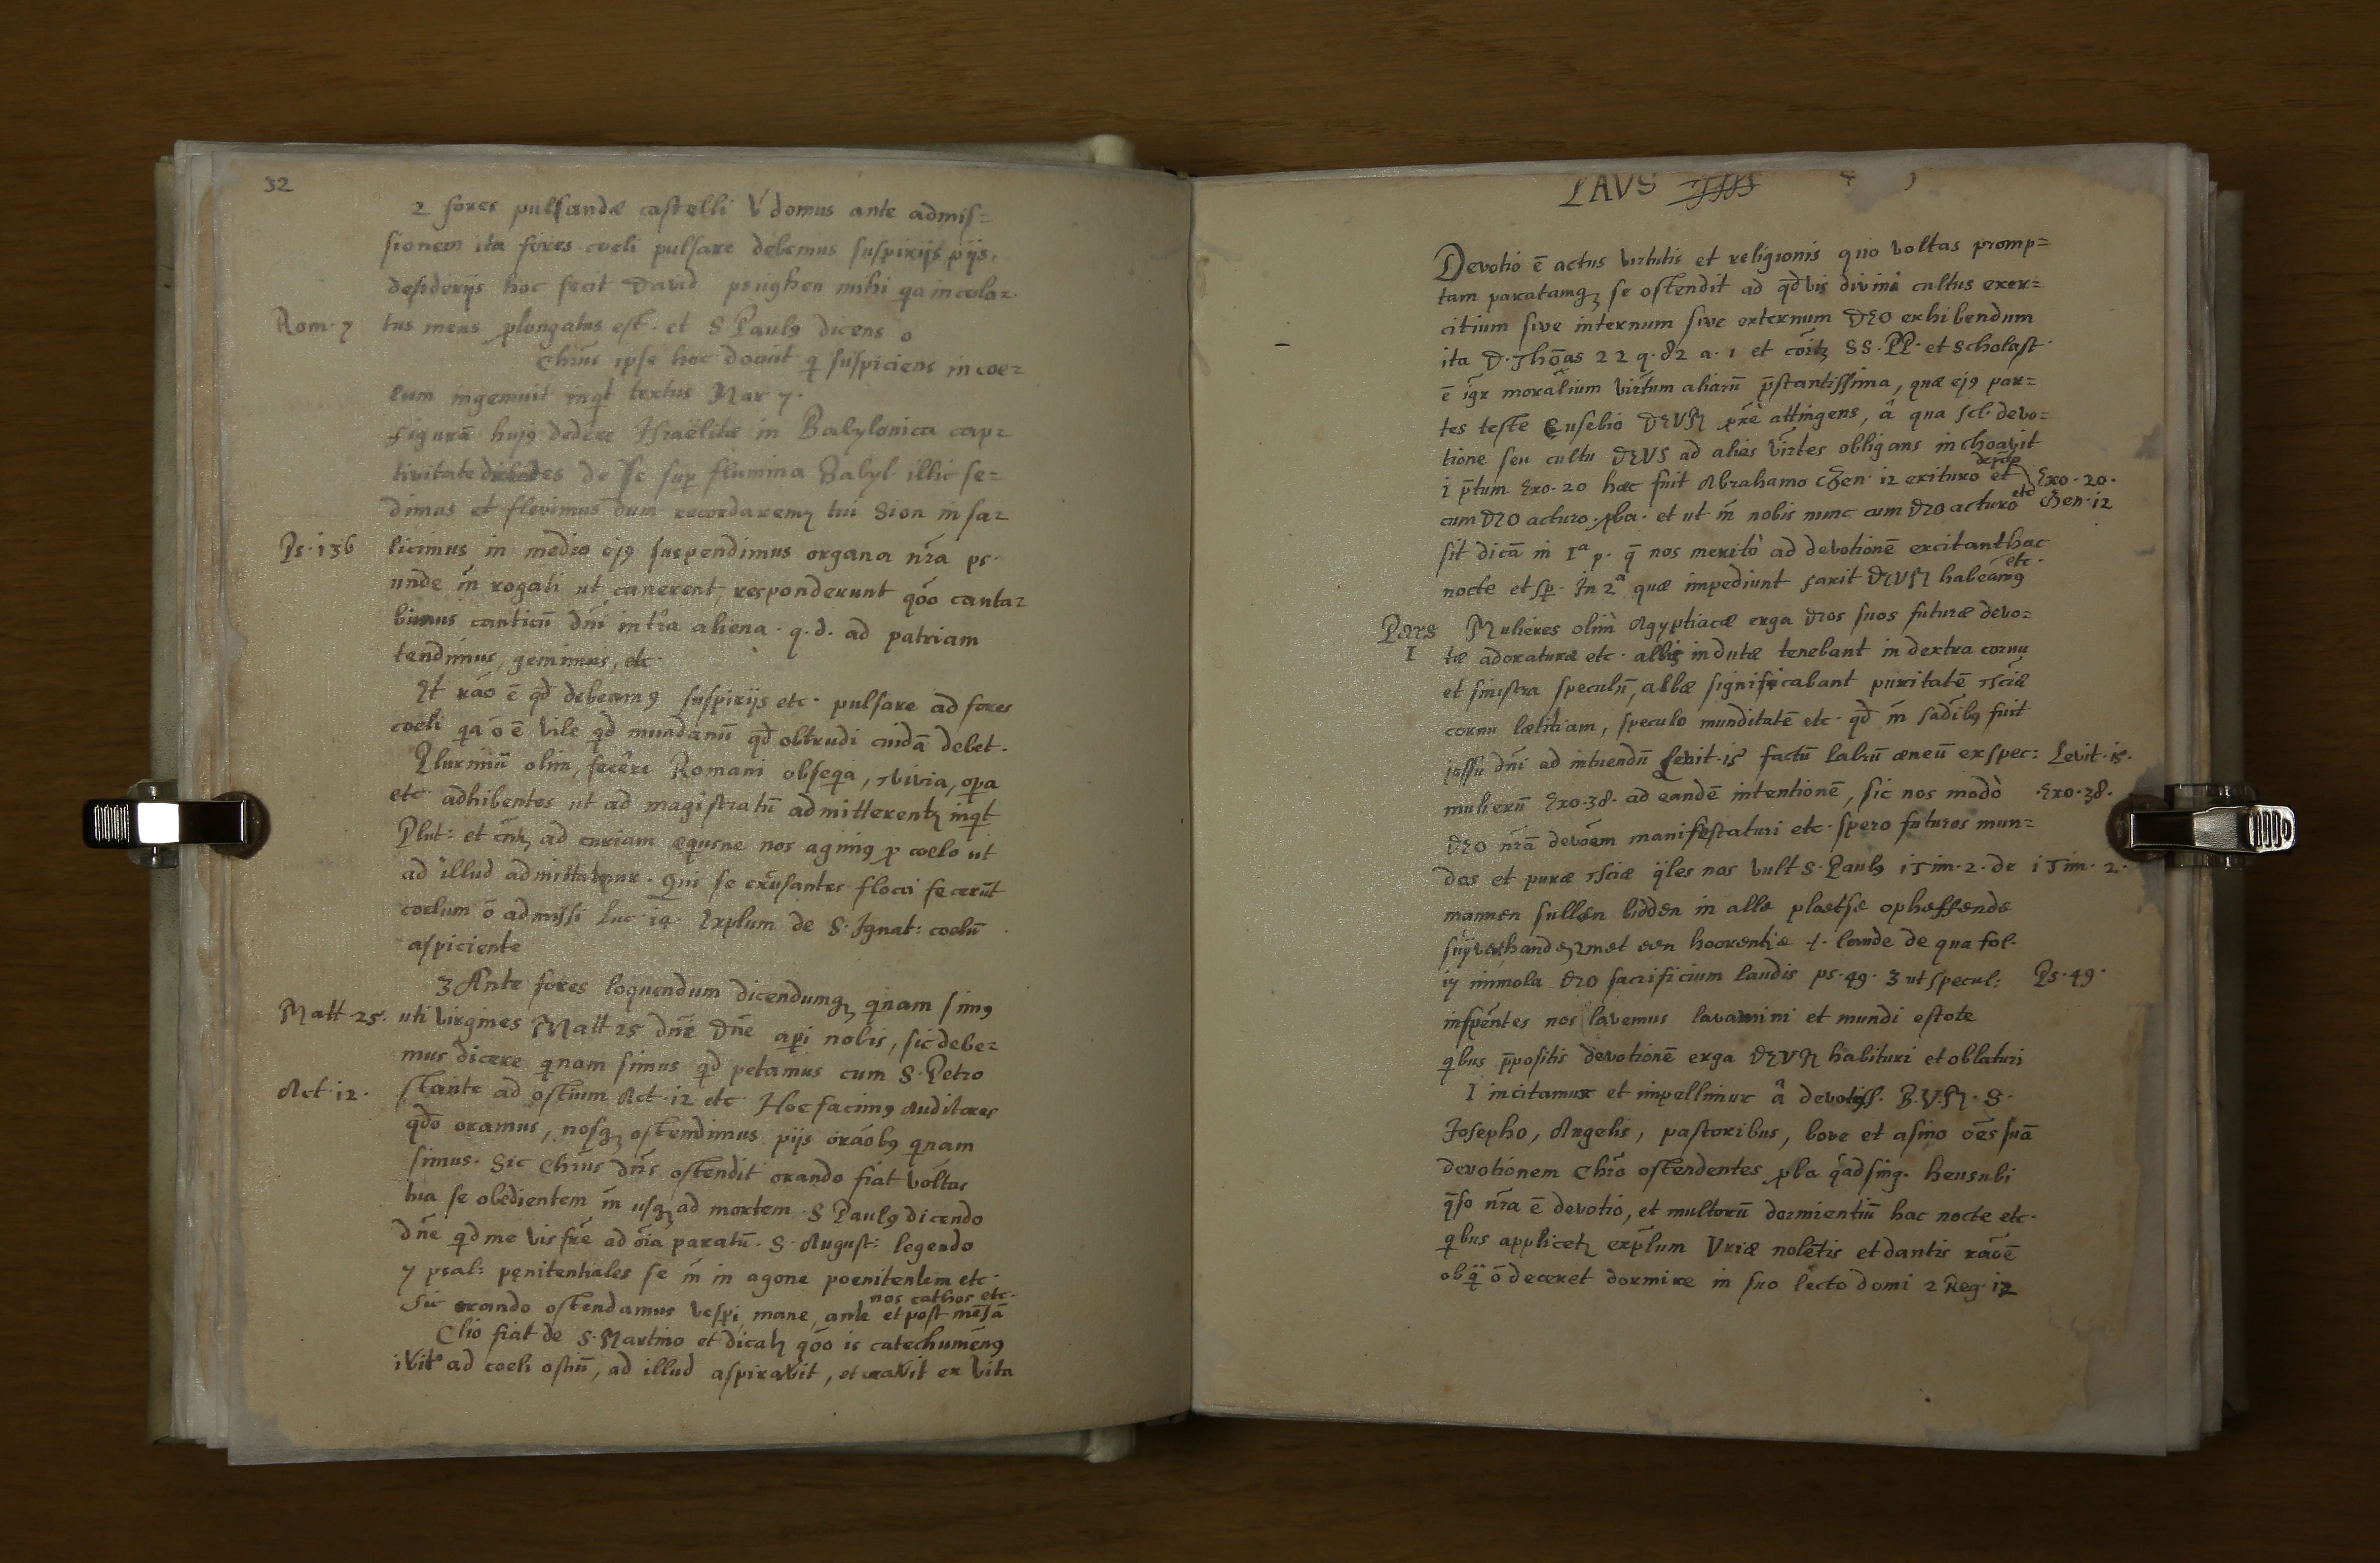 32
2 fores pulsandæ castelli V domus ante admis=
sionem ita fores coeli pulsare debemus suspirijs pijs,
desiderijs hoc fecit David psughen mihi qa incola=
Rom·7 tus meus plongatus est. et S Paulꝰ dicens o
Chrūs ipse hoc docuit q suspiciens in coe=
lum ingemuit inqt textus Mar 7.
figurā hujꝰ dedere Israëlitæ in Babylonica cap=
tivitate de se sup flumina Babyl illic se=
dimus et flevimus dum recordaremꝰ tui Sion in sa=
Ps·136 licimus in medio ejꝰ suspendimus organa nr̄a ps·
unde m̄ rogati ut canerent, responderunt qōo canta=
bimus canticū dn̄i in tr̄a aliena · q.d. ad patriam
tendimus, gemimus, etc·
Et rāo ē qd debeamꝰ suspirijs etc· pulsare ad fores
coeli qa ō ē vile qd mundanū qd obtrudi cuidā debet.
Plurimū olim fecēre Romani obseqa, opa
etc· adhibentes ut ad magistratū admitterentꝫ inqt
Plut: et ad curiam nos agimꝰ p coelo ut
ad illud admittamur. Qui se excusantes flocci fecerūt
coelum ō admissi Luc·14· Explum de S·Ignat: coelū
aspiciente
3 Ante fores loquendum dicendumqꝫ qnam simꝰ
Matt·25. uti virgines Matt 25 dn̄e dn̄e api nobis, sic debe=
mus dicere qnam simus qd petamus cum S·Petro
Act·12· stante ad ostium Act·12 etc· Hoc facimꝰ Auditores
qdo oramus, nosqꝫ ostendimus pijs orāobꝰ qnam
simus. Sic Chrūs dn̄s ostendit orando fiat vōltas
tua se obedientem m̄ usqꝫ ad mortem. S Paulꝰ dicendo
dn̄e qd me vis frē ad ōia paratū. S·August: legendo
7 psal: penitentiales se m̄ in agone poenitentem etc·
nos cathos etc·
Sic orando ostendamus vespi, mane, ante et post mēsā
Clio fiat de S·Martino et dicatꝫ qōo is catechumēnꝰ
ivit ad coeli ostiū, ad illud aspiravit, et ex vita
LAVS
Devotio ē actus virtutis et religionis quo voltas promp=
tam paratamqꝫ se ostendit ad qdvis divini cultus exer=
citium sive internum sive externum DEO exhibendum
ita D·Thōas 22 q·82 a·1 et cōitꝫ SS·PP· et Scholast·
ē igr moralium virtum aliarū p̄stantissima, quæ ejꝰ par=
tes teste Eusebio DEVM prē attingens, â qua scl· devo=
tione seu cultu DEVS ad alias virtes obligans inchoavit
i p̄tum Exo·20 hæc fuit Abrahamo Gen·12 exituro et Exo·20·
cum DEO acturo · pba · et ut m̄ nobis nunc cum DEO acturo etc Gen·12
sit dicā in 1ᵃ p· q̄ nos meritò ad devotionē excitant hac
etc·
nocte et sp· In 2ᵃ quæ impediunt faxit DEVM habeāmꝰ
Pars Mulieres olim Ægyptiacæ erga DEos suos futuræ devo=
I tæ adoraturæ etc· albis indutæ tenebant in dextra cornu
et sinistra speculū, albæ significabant puritatē
cornu lætitiam, speculo munditatē etc· qd m̄ fuit
jussu dn̄i ad intuendū Levit·15 factū labrū æneū ex spec: Levit·15·
mulierū Exo·38· ad eandē intentionē, sic nos modò Exo·38·
DEO nr̄ā devōem manifestaturi etc· spero futuros mun=
dos et puræ qles nos vult S·Paulꝰ 1Tim·2· de 1Tim·2·
mannen sullen bidden in alle plaetse opheffende
suijver handen met een hoorentie +· laude de qua fol·
17 immola DEO sacrificium laudis ps·49· 3 ut specul: Ps·49·
inspēntes nos lavemus lavamini et mundi estote
qbus p̄positis devotionē erga DEVM habituri et oblaturi
I incitamur et impellimur â devotiss· B·V·M· S·
Josepho, Angelis, pastoribus, bove et asino ōes suā
devotionem Chr̄o ostendentes pba qad sing· heus ubi
q̄so nr̄a ē devotio, et multorū dormientiū hac nocte etc·
qbus applicetꝫ explum Vriæ nolētis et dantis rāoē
ob q̄ ō deceret dormire in suo lecto domi 2 Reg·12